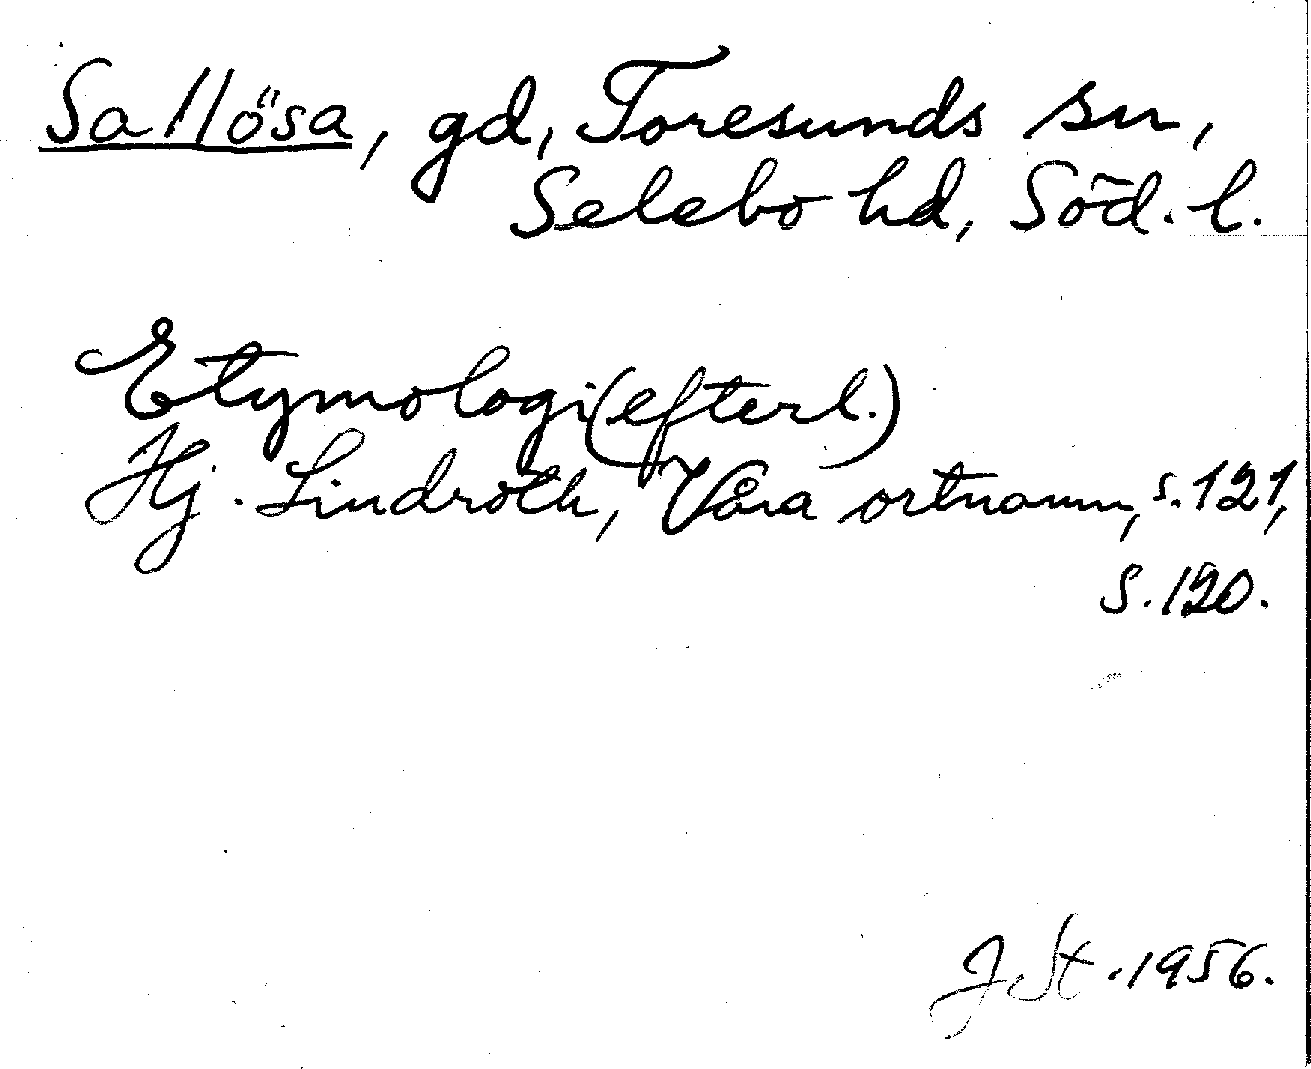 Sallösa, gd, Toresunds sn,
Selebo hd, Söd. l.
Etymologi (efterl.)
Hj. Lindroth, Våra ortnamn, s. 121,
s. 120.
J St. 1956.